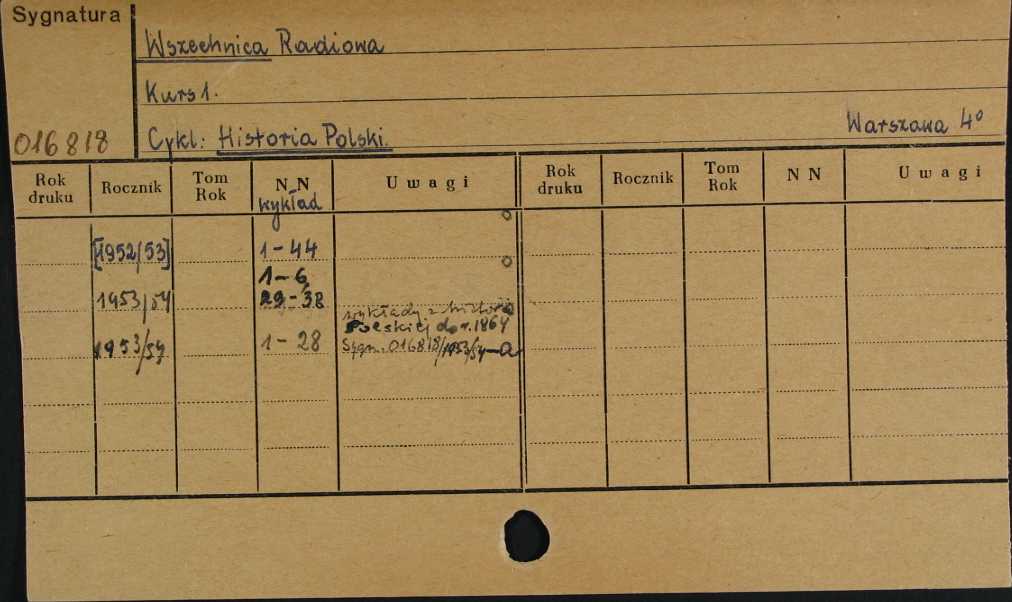 Sygnatura
Wszechnica Radiowa
Kurs 1.
016818 Cykl: Historia Polski. Warszawa 4°
Rok druku Rocznik Tom Rok NN wykład Uwagi Rok druku Rocznik Tom Rok NN Uwagi
[1952/53] 1-44
1-6
1953/54 29-38
wykłady z histor
Polskiej do r. 1864
1953/54 1-28 Sygn. 016818/1953/54-a